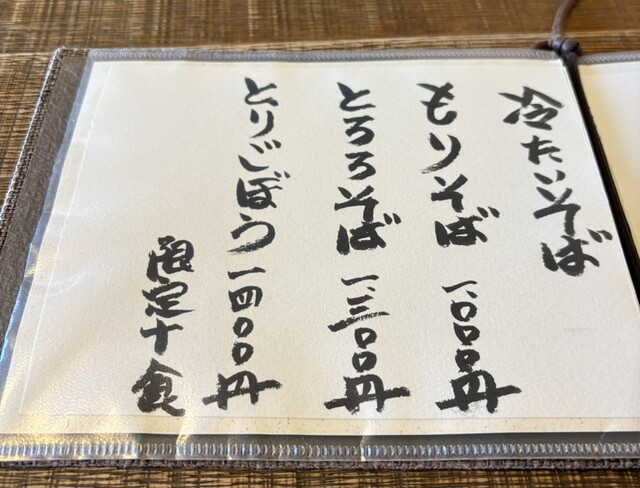 冷たいそば
もりそば 一、〇〇〇円
とろろそば 一、三〇〇円
とりじぼう 一四〇〇円
限定十食